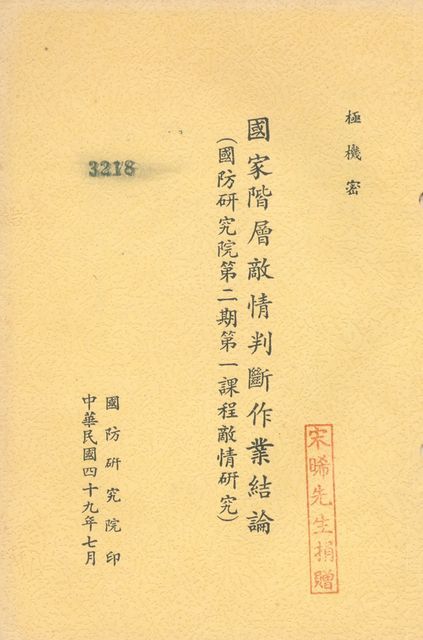 極機密
國家階層敵情判斷作業結論
(國防研究院第二期第一課程敵情研究)
宋晞先生捐贈
3218
國防研究院印
中華民國四十九年七月